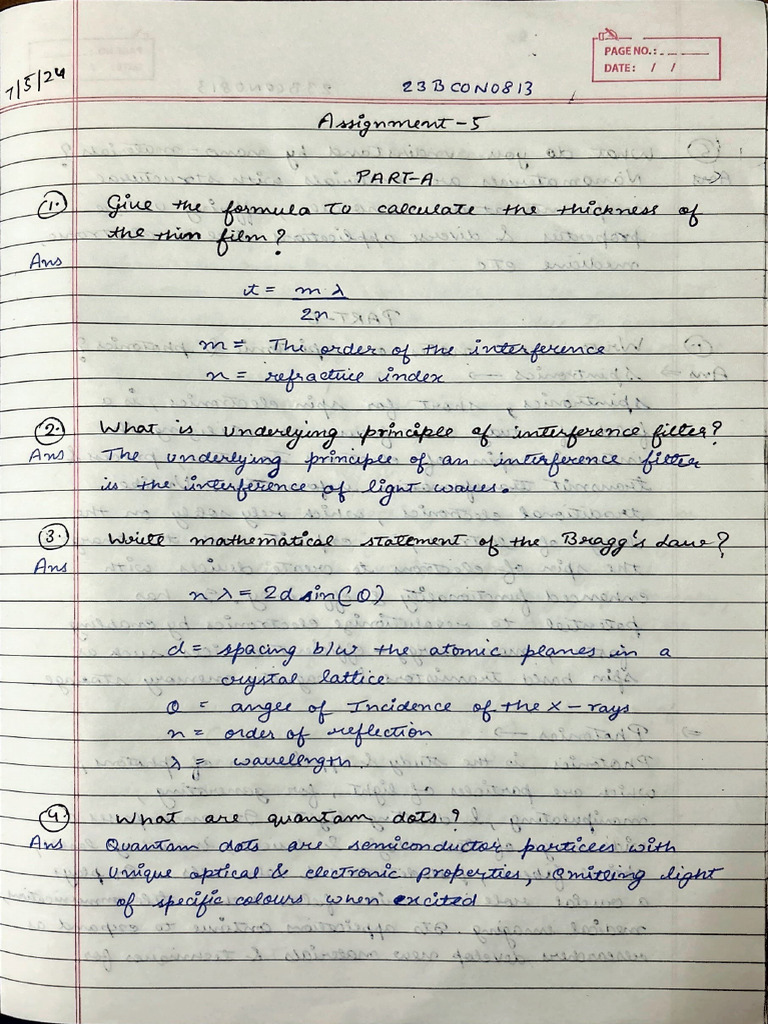 PAGE NO.:
DATE: / /
7/5/24
23BCON0813
Assignment-5
PART-A
1. Give the formula To calculate the thickness of
the thin film?
Ans
t = mλ
2n
m = The order of the interference
n = refractive index
2. What is underlying principle of interference filter?
Ans The underlying principle of an interference filter
is the interference of light waves.
3. Write mathematical statement of the Bragg's Law?
Ans
nλ = 2d sin(θ)
d = spacing b/w the atomic planes in a
crystal lattice
θ = angle of Incidence of the x-rays
n = order of reflection
λ = wavelength.
4. What are quantam dots?
Ans Quantam dots are semiconductor particles with
unique optical & electronic properties, emitting light
of specific colours when excited